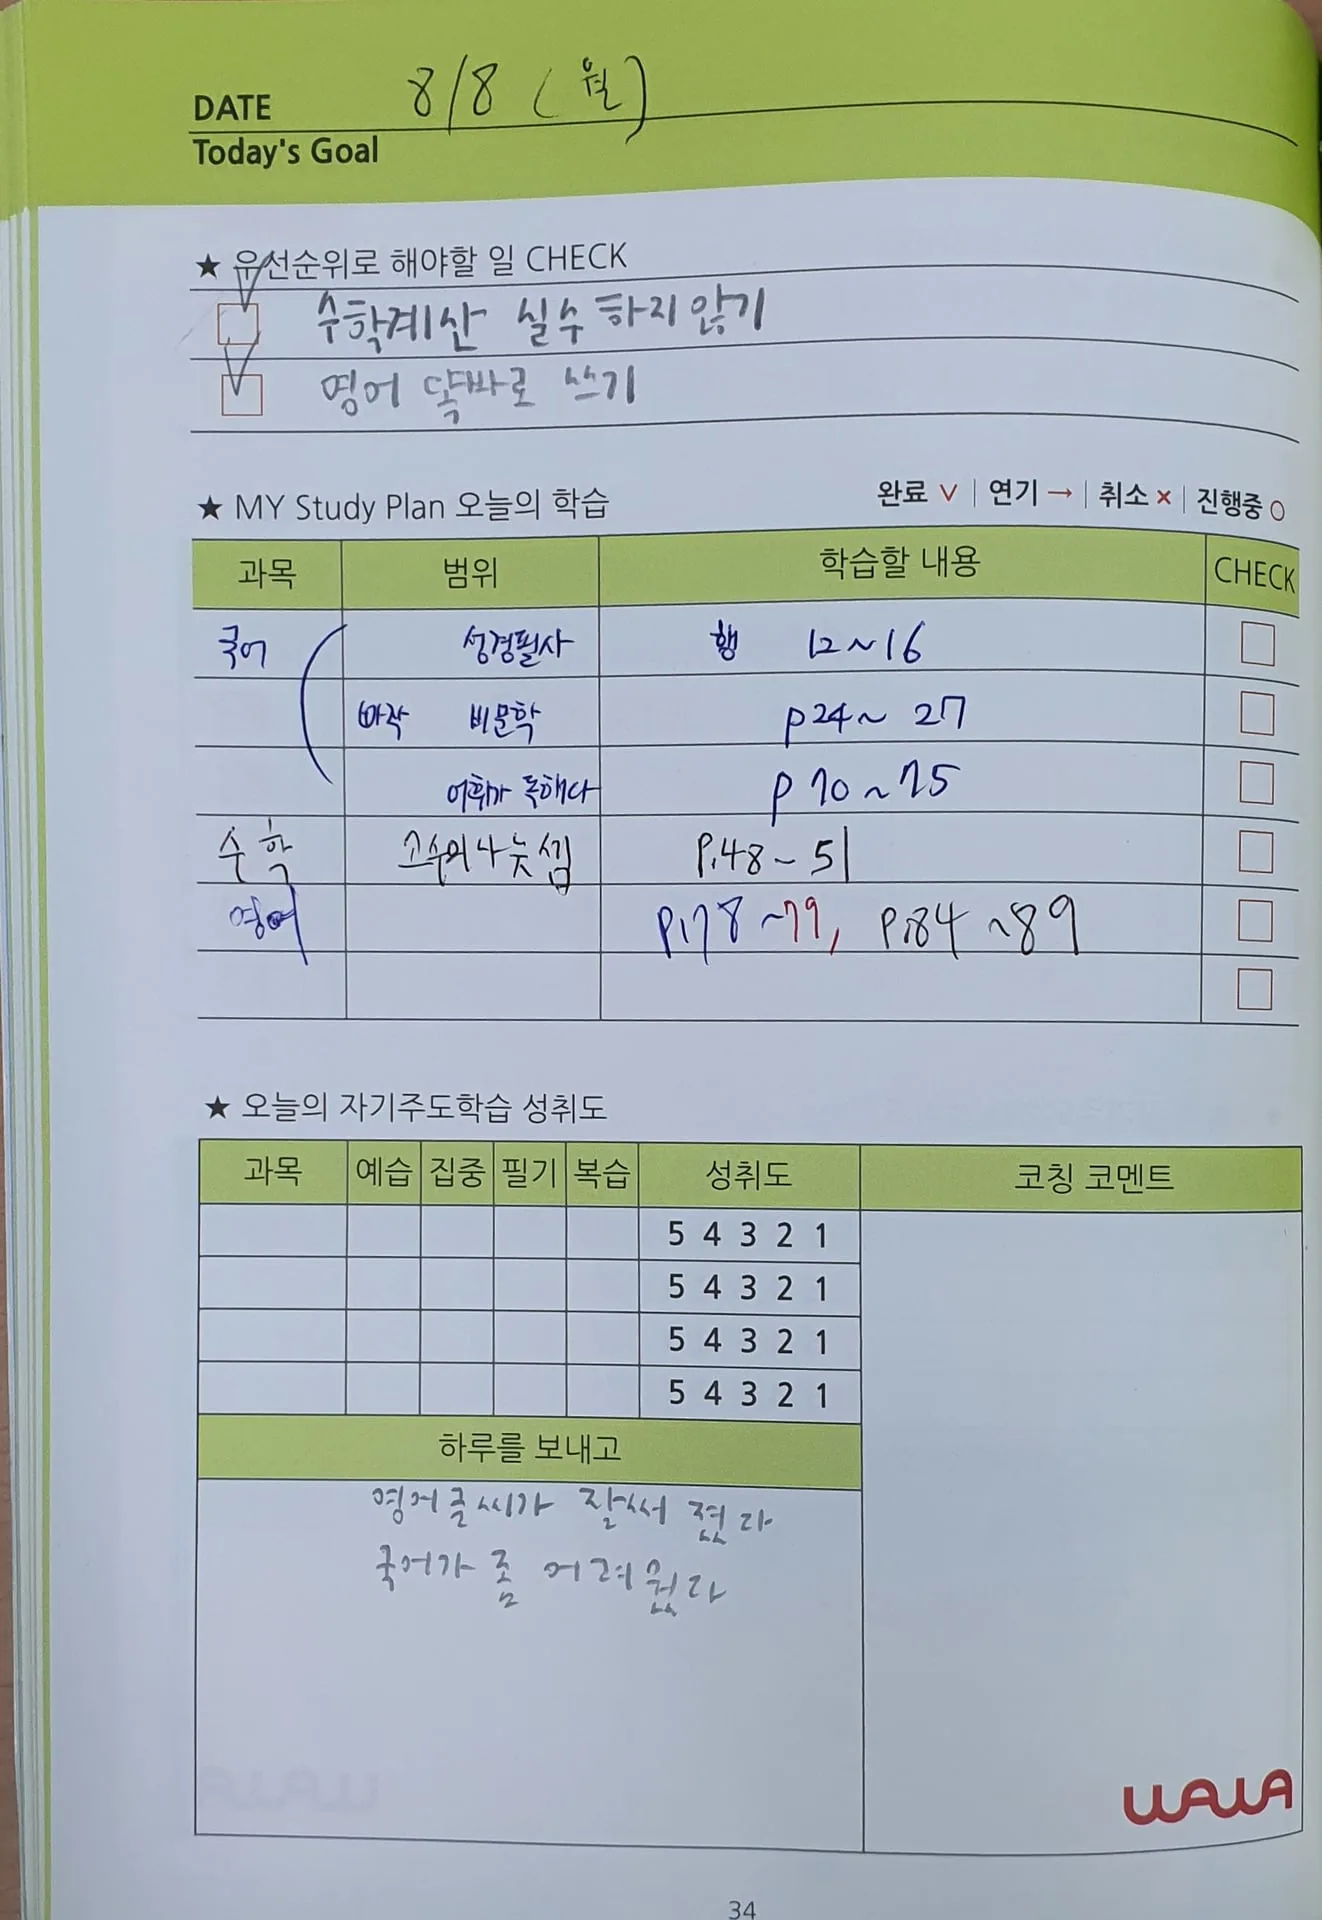 DATE 8/8 (월)
Today's Goal
★ 우선순위로 해야할 일 CHECK
수학계산 실수하지않기
영어 똑바로 쓰기
★ MY Study Plan 오늘의 학습 완료 ∨ | 연기 → | 취소 × | 진행중 ○
과목 범위 학습할 내용 CHECK
국어 성경필사 행 12~16
바작 비문학 p24~ 27
어휘가 독해다 p 70~75
수학 고수의 나눗셈 P.48~51
영어 P.78~79, P.84~89
★ 오늘의 자기주도학습 성취도
과목 예습 집중 필기 복습 성취도 코칭 코멘트
5 4 3 2 1
5 4 3 2 1
5 4 3 2 1
5 4 3 2 1
하루를 보내고
영어글씨가 잘써 졌다
국어가 좀 어려웠다
WAWA
34